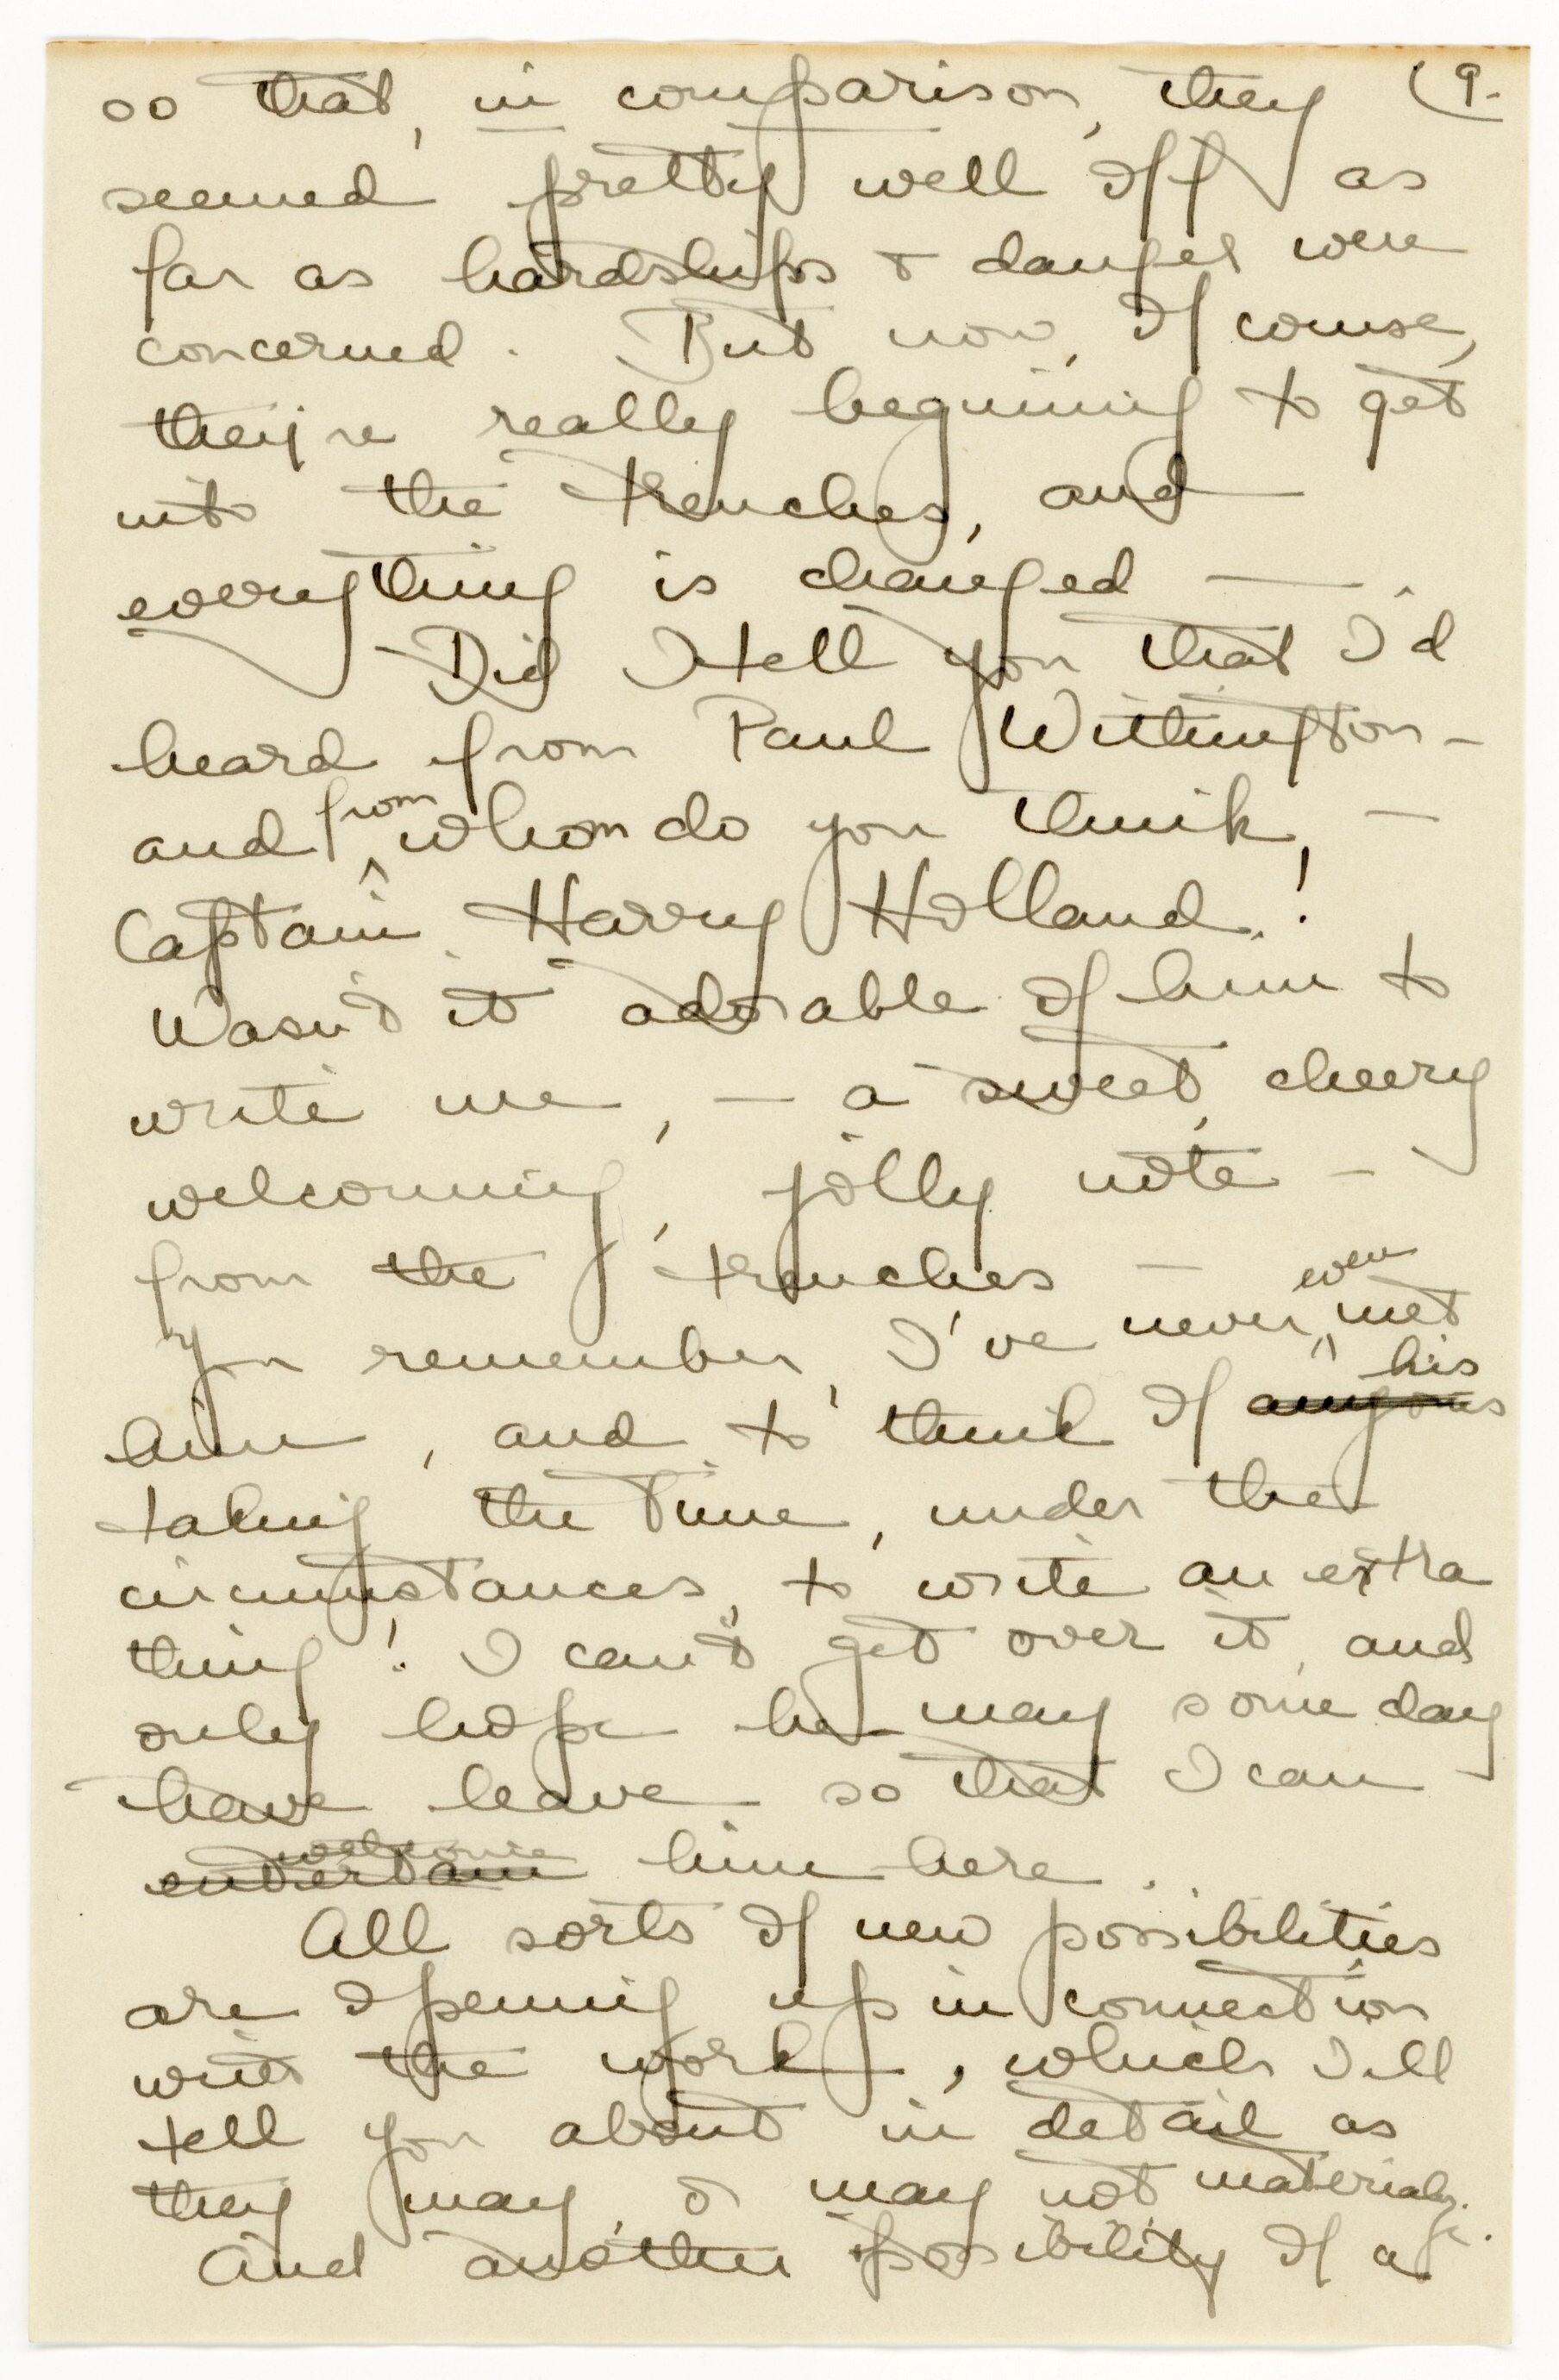 so that, in comparison, they (9.
seemed pretty well off as
far as hardships & danger were
concerned. But now, of course,
they're really beginning to get
into the trenches, and
everything is changed —.
Did I tell you that I'd
heard from Paul Withington –
and from whom do you think, —
Captain Harry Holland!
Wasn't it adorable of him to
write me, — a sweet, cheery
welcoming, jolly note –
from the trenches —
You remember, I've never even met
him, and to think of anyone's his
taking the time, under the
circumstances, to write an extra
thing! I can't get over it, and
only hope he may some day
have leave so that I can
entertain welcome him here.
All sorts of new possibilities
are opening up in connection
with the work, which I'll
tell you about in detail as
they may, or may not materialize.
And another possibility of a